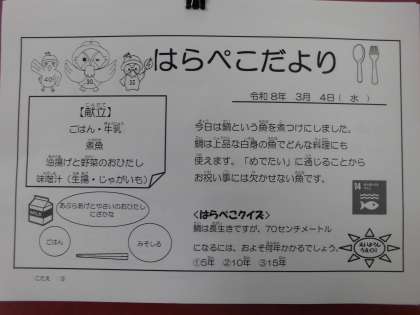 はらぺこだより
令和8年 3月 4日（水）
【献立】
ごはん・牛乳
煮魚
油揚げと野菜のおひたし
味噌汁（生揚・じゃがいも）
今日は鯛という魚を煮つけにしました。
鯛は上品な白身の魚でどんな料理にも
使えます。「めでたい」に通じることから
お祝い事には欠かせない魚です。
あぶらあげとやさいのおひたし
にざかな
ごはん
みそしる
14
＜はらぺこクイズ＞
鯛は長生きですが、70センチメートル
になるには、およそ何年かかるでしょう。
①5年 ②10年 ③15年
こたえ ③